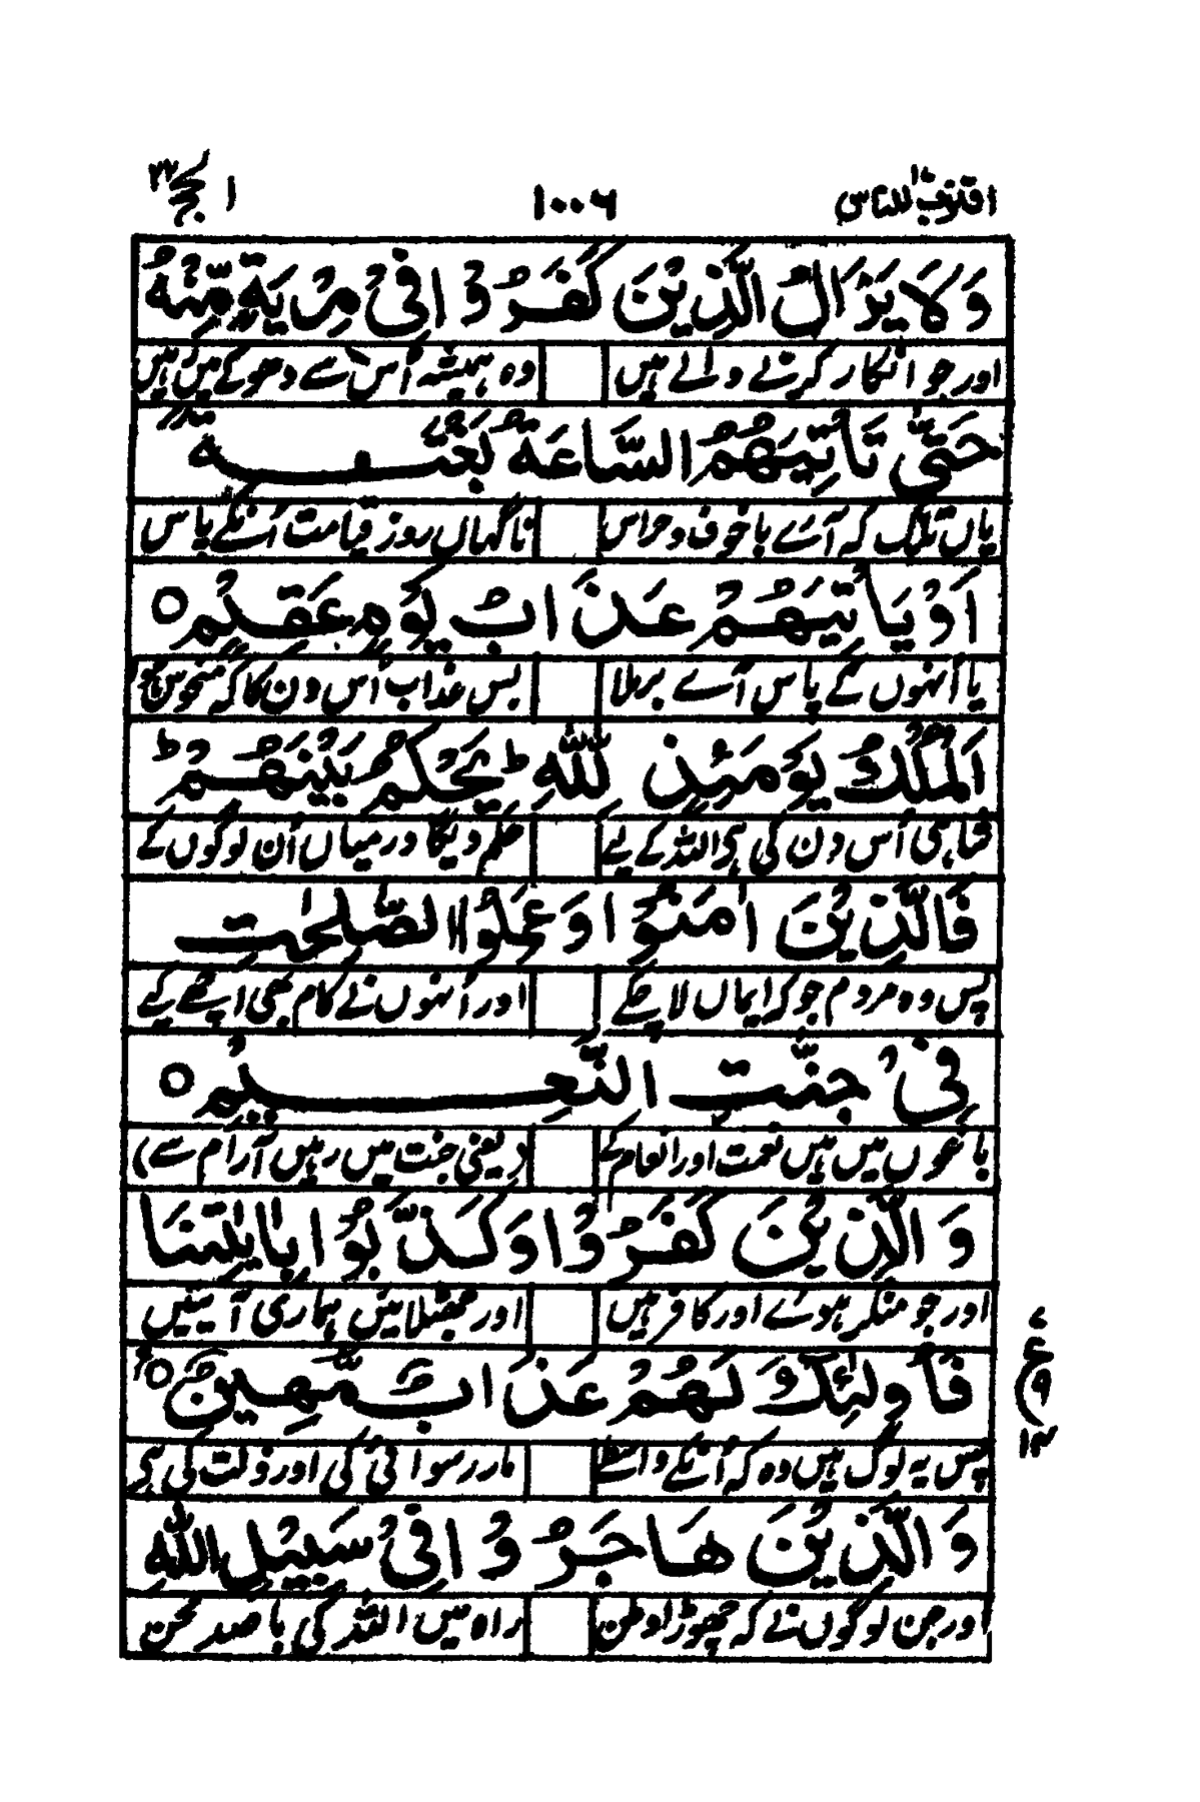 اقترب للناس ١٧ ١٠٠٦ الحج ٢٢
وَلَا يَزَالُ الَّذِيْنَ كَفَرُوْا فِىْ مِرْيَةٍ مِّنْهُ
اور جو انکار کرنے والے ہیں وہ ہمیشہ اُس سے دھوکے میں ہیں
حَتّٰى تَاْتِيَهُمُ السَّاعَةُ بَغْتَةً
یاں تلک کہ آۓ باخوف و ہراس ناگہاں روز قیامت اُنکے پاس
اَوْ يَاْتِيَهُمْ عَذَابُ يَوْمٍ عَقِيْمٍ ○
یا اُنہوں کے پاس آۓ برملا بس عذاب اُس دن کا کہ منحوس ہو
اَلْمُلْكُ يَوْمَئِذٍ لِّلّٰهِ ؕ يَحْكُمُ بَيْنَهُمْ ؕ
شاہی اُس دن کی ہی اللہ کے لیے حکم دیگا درمیاں اُن لوگوں کے
فَالَّذِيْنَ اٰمَنُوْا وَعَمِلُوا الصّٰلِحٰتِ
پس وہ مردم جو کہ ایماں لا چکے اور اُنہوں نے کام بھی اچھے کیے
فِىْ جَنّٰتِ النَّعِيْمِ ○
باغوں میں ہیں نعمت اور انعام کے (یعنی جنت میں رہیں آرام سے)
وَالَّذِيْنَ كَفَرُوْا وَكَذَّبُوْا بِاٰيٰتِنَا
اور جو منکر ہوۓ اور کافر ہیں اور جھٹلائیں ہماری آیتیں
فَاُولٰٓئِكَ لَهُمْ عَذَابٌ مُّهِيْنٌ ○
ع ٩ ١٤
پس یہ لوگ ہیں وہ کہ اُنکے واسطے مار رسوائی کی اور ذلت کی ہی
وَالَّذِيْنَ هَاجَرُوْا فِىْ سَبِيْلِ اللّٰهِ
اور جن لوگوں نے کہ چھوڑا وطن راہ میں اللہ کی با صد محن